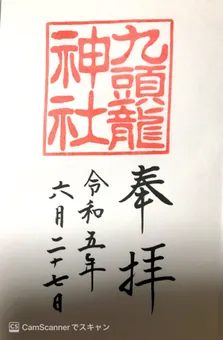 九頭龍
神社
奉拝
令和五年
六月二十七日
CS CamScannerでスキャン